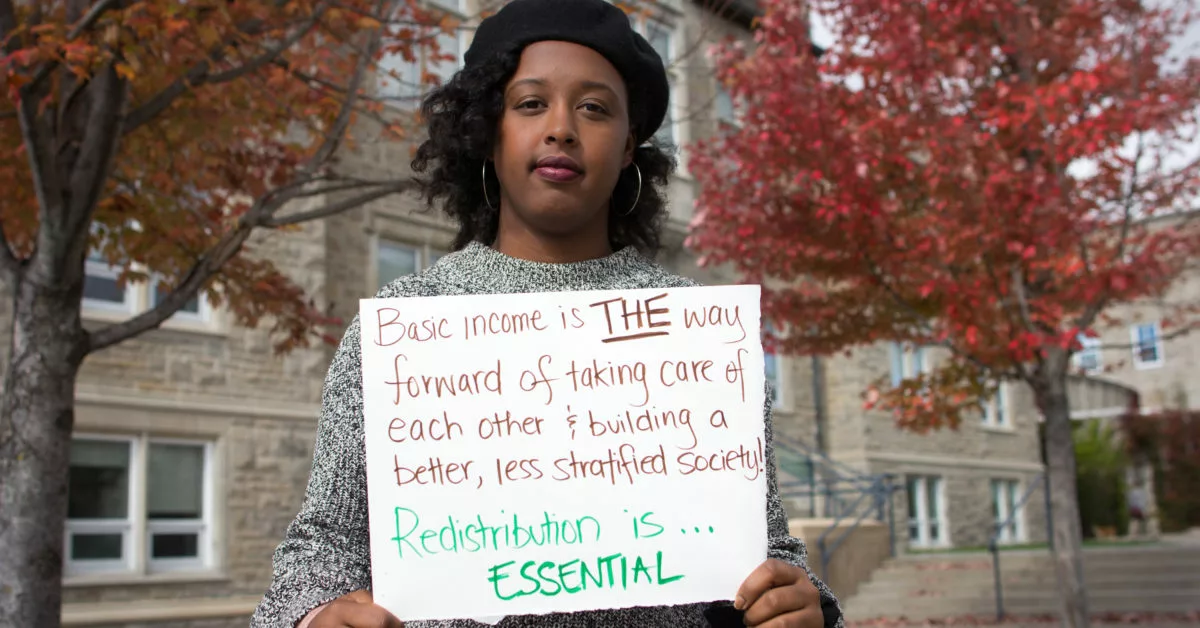 Basic income is THE way
forward of taking care of
each other & building a
better, less stratified society!
Redistribution is ...
ESSENTIAL